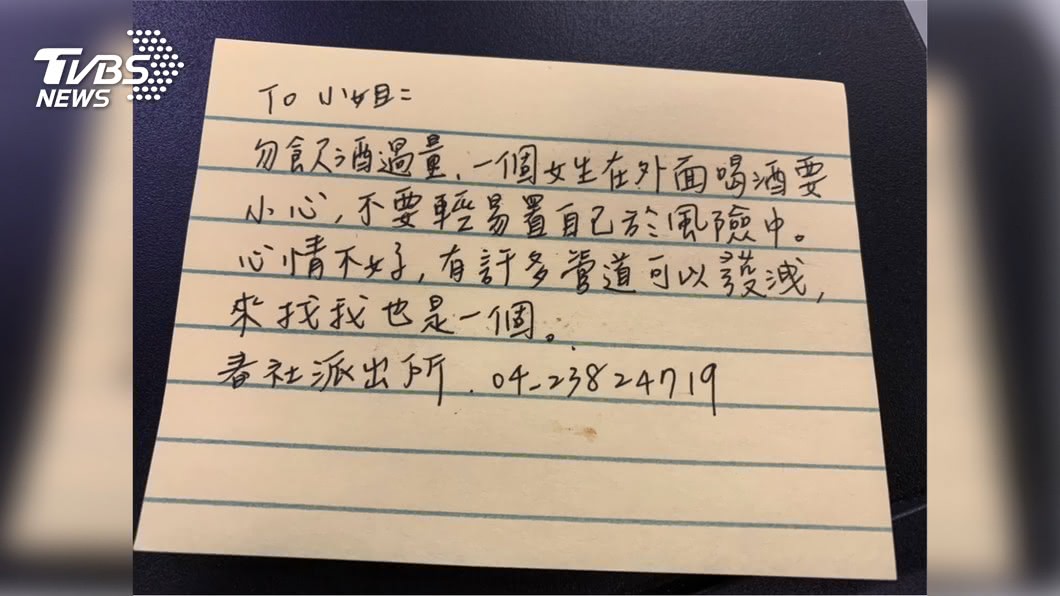 TVBS
NEWS
To 小姐=
勿飲酒過量、一個女生在外面喝酒要
小心,不要輕易置自己於風險中。
心情不好,有許多管道可以發洩,
來找我也是一個。
春社派出所.04-23824719